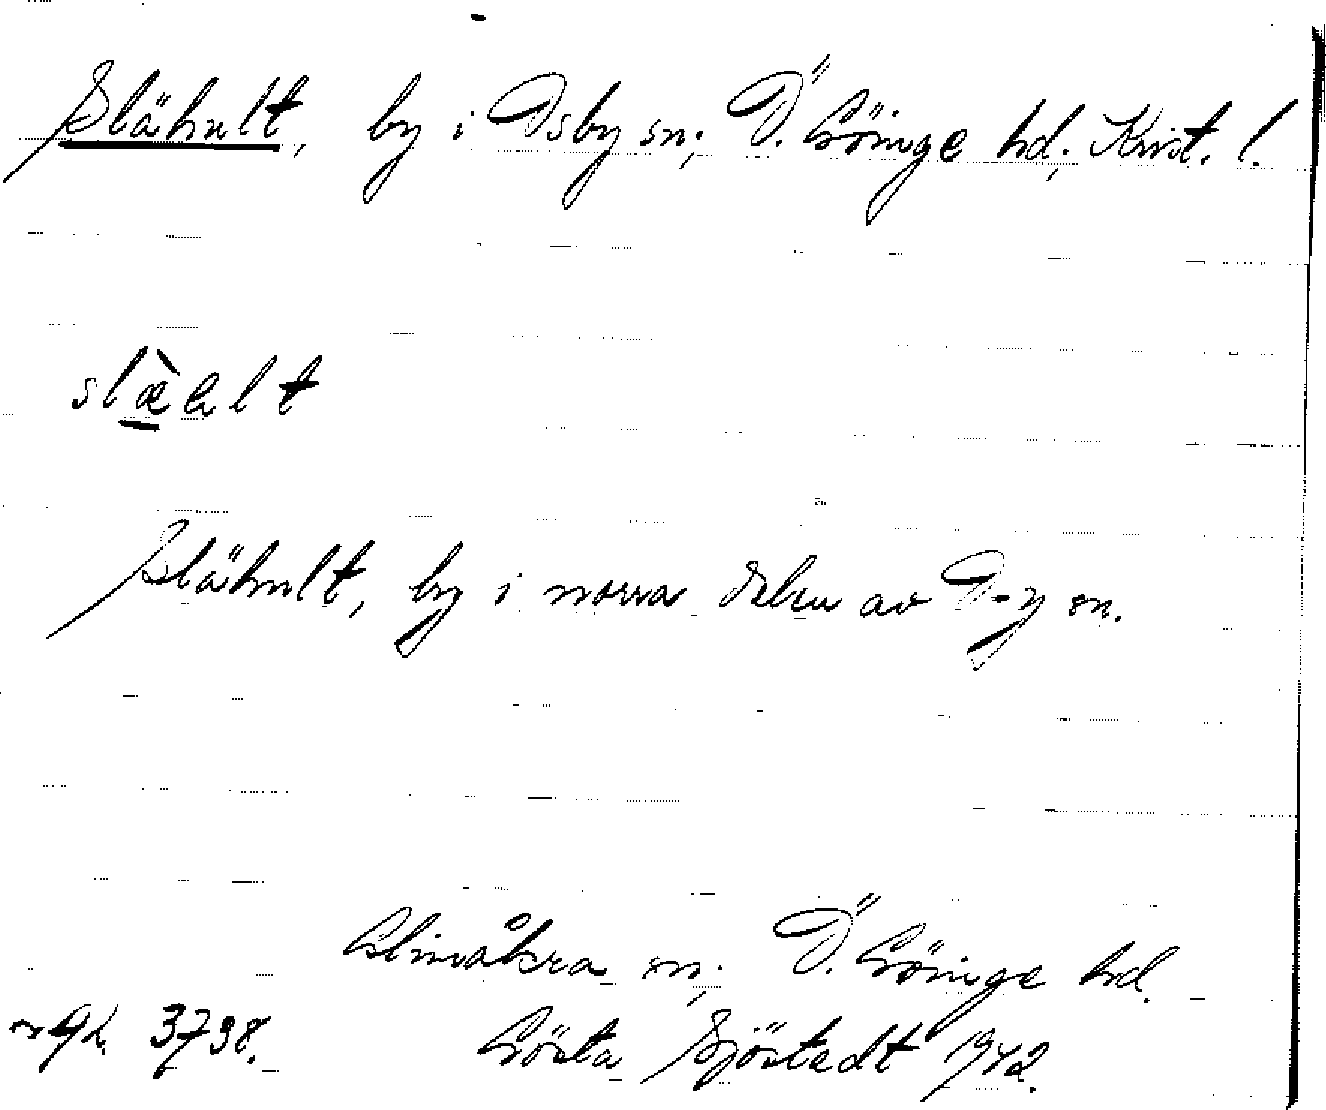 Slähult, by i Osby sn; Ö. Göinge hd; Krist. l.
slæ̀ult
Slähult, by i norra delen av O-y sn.
Glimåkra sn; Ö. Göinge hd.
3738. Gösta Sjöstedt 1942.